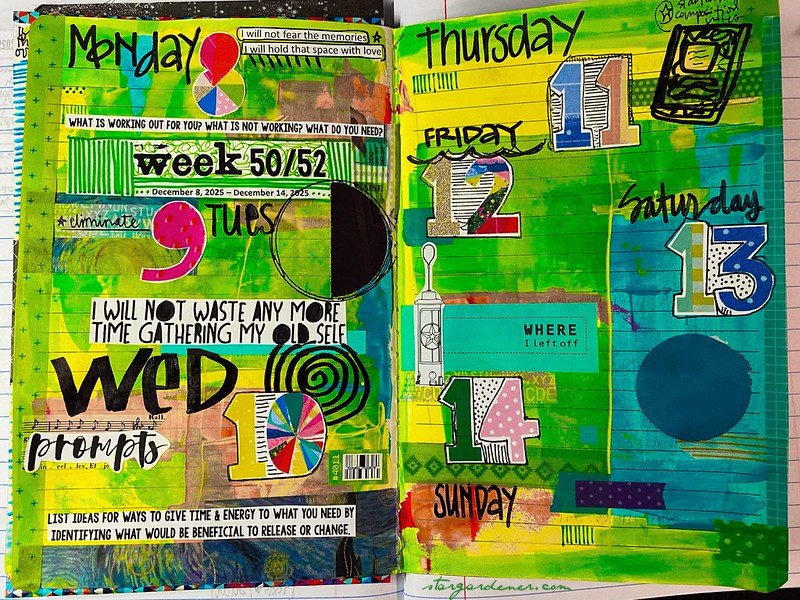 Monday
8
I will not fear the memories
I will hold that space with love
WHAT IS WORKING OUT FOR YOU? WHAT IS NOT WORKING? WHAT DO YOU NEED?
week 50/52
December 8, 2025 – December 14, 2025
eliminate
9 TUES
I WILL NOT WASTE ANY MORE
TIME GATHERING MY OLD SELF
WED
10
prompts
LIST IDEAS FOR WAYS TO GIVE TIME & ENERGY TO WHAT YOU NEED BY
IDENTIFYING WHAT WOULD BE BENEFICIAL TO RELEASE OR CHANGE.
Thursday
11
FRIDAY
12
Saturday
13
WHERE
I left off
14
SUNDAY
stargardener.com